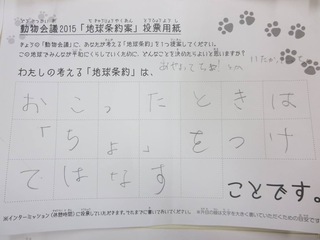 動物会議2015「地球条約案」投票用紙
きょうの「動物会議」に、あなたが考える「地球条約」を1つ提案してください。
この地球でみんなが平和にくらしていくために、どんなことを決めたらよいと思いますか？
わたしの考える「地球条約」は、
おこったときは
「ちょ」をつけ
てはなす
ことです。
※インターミッション(休憩時間)に投票していただきます。でもまでに書いておいてください。